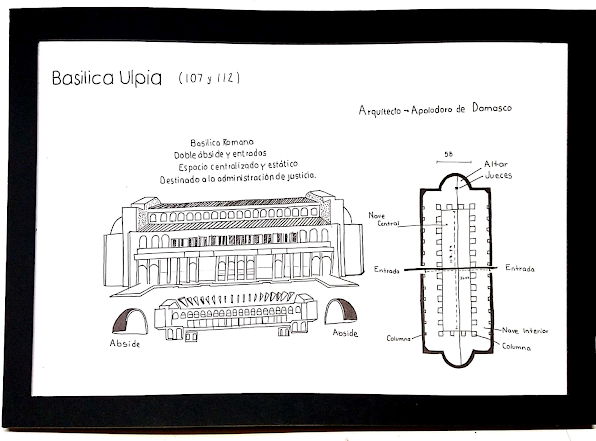 Basilica Ulpia (107 y 112)
Arquitecto → Apolodoro de Damasco
Basilica Romana
Doble ábside y entradas
Espacio centralizado y estático
Destinado a la administración de justicia.
58
Altar
Jueces
Nave
Central
Entrada
Entrada
Abside
Abside
Columna
Nave Interior
Columna